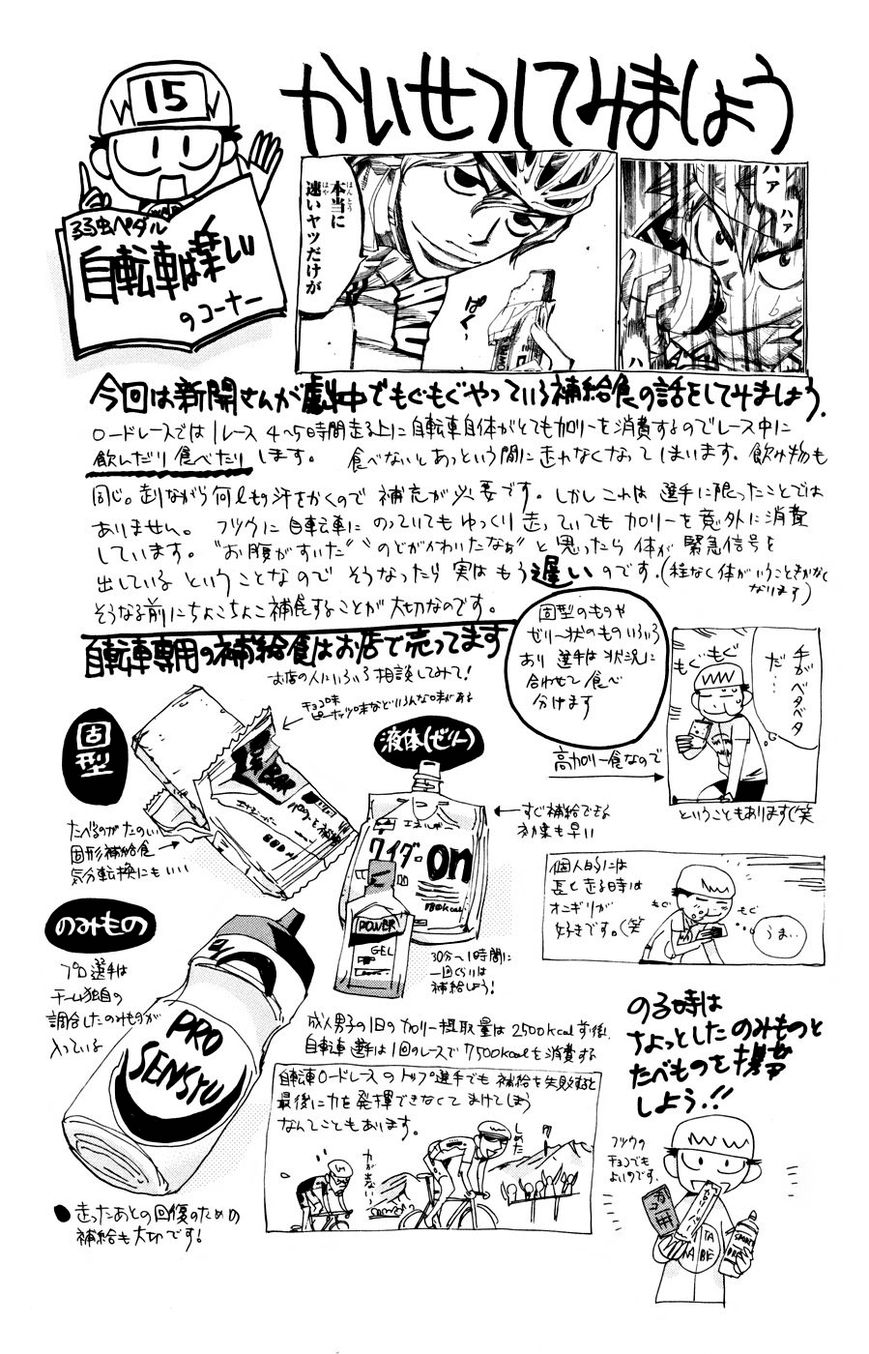 かいせつしてみましょう
15
弱虫ペダル
自転車は楽しい
のコーナー
本当に
速いヤツだけが
ぱく
ハァ
ハァ
ハ
今回は新開さんが劇中でもぐもぐやっている補給食の話をしてみましょう.
ロードレースでは1レース4〜5時間走る上に自転車自体がとてもカロリーを消費するのでレース中に
飲んだり食べたりします。 食べないとあっという間に走れなくなってしまいます。飲み物も
同じ。走りながら何ℓもの汗をかくので 補充が必要です。しかしこれは選手に限ったことでは
ありません。 フツウに自転車にのっていてもゆっくり走っていてもカロリーを意外に消費
しています。"お腹がすいた""のどがかわいたなぁ"と思ったら体が緊急信号を
出しているということなので そうなったら実はもう遅いのです。(程なく体がいうことをきかなく
なります)
そうなる前にちょこちょこ補食することが大切なのです。
自転車専用の補給食はお店で売ってます
お店の人にいろいろ相談してみて!
固型のものや
ゼリー状のものいろいろ
あり 選手は状況に
合わせて食べ
分けます
高カロリー食なので
手がベタベタ
だ…
もぐもぐ
ということもあります(笑
固型
チョコ味
ピーナッツ味などいろんな味がある
BAR
エネルギーバー
たべるのがたのしい
固形補給食
気分転換にもいい
液体(ゼリー)
エネルギー
ウイダーon
180kcal
POWER
GEL
すぐ補給できる
効果も早い
30分〜1時間に
一回ぐらいは
補給しよう!
個人的には
長く走る時は
オニギリが
好きです。(笑
もぐ
もぐ
うま…
のみもの
プロ選手は
チーム独自の
調合したのみものが
入っている
PRO
SENSYU
成人男子の1日のカロリー摂取量は2500kcal前後.
自転車選手は1回のレースで7500kcalを消費する
自転車ロードレースのトップ選手でも補給を失敗すると
最後に力を発揮できなくてまけてしまう
なんてこともあります。
しめた
力が出ないっ
のる時は
ちょっとしたのみものと
たべものを携帯
しよう.!!
フツウの
チョコでも
よいのです.
TA
NABE
●走ったあとの回復のための
補給も大切です!